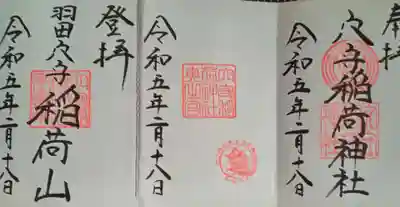 奉拝
穴守稲荷神社
令和五年二月十八日
令和五年二月十八日
登拝
羽田穴守稲荷山
令和五年二月十八日